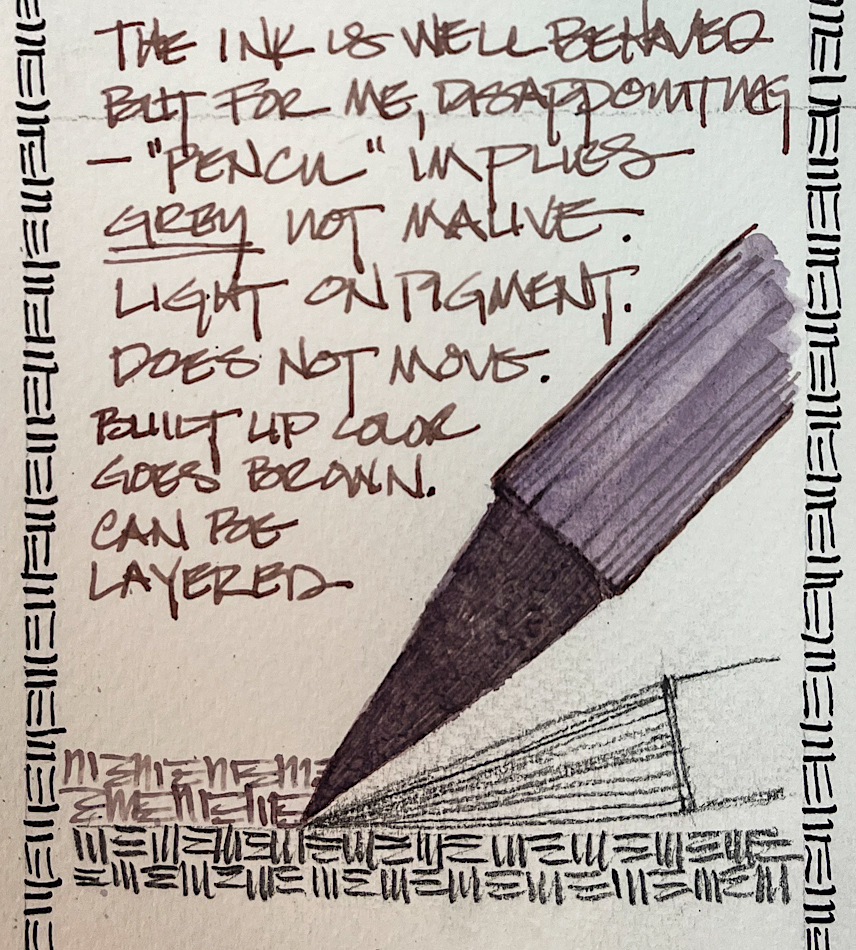 THE INK IS WELL BEHAVED
BUT FOR ME, DISAPPOINTING
— "PENCIL" IMPLIES
GREY NOT MAUVE.
LIGHT ON PIGMENT.
DOES NOT MOVE.
BUILT UP COLOR
GOES BROWN.
CAN BE
LAYERED